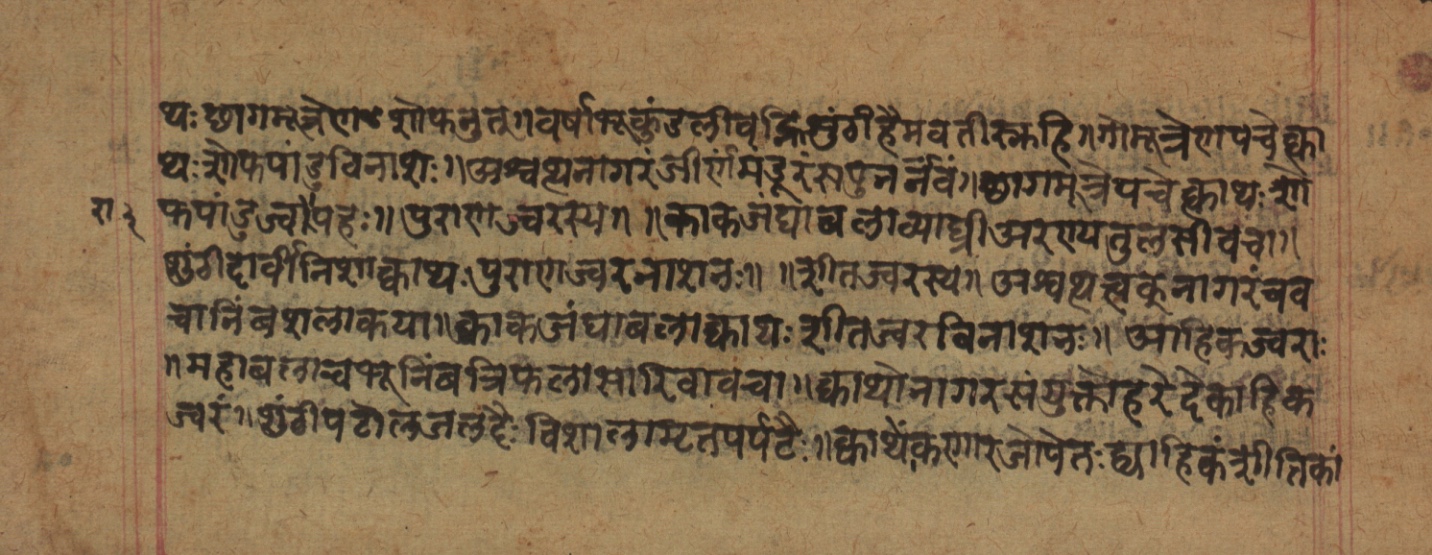 थः छागमूत्रेण शोफनुत् ॥ वर्षाभूकुंडलीवह्निशुंठीहैमवतीस्नहि ॥ गोमूत्रेण पचेत्क्वा
थः शोफपांडुविनाशः ॥ अश्वत्थनागरं जीर्णमंडूरं सपुनर्नवं ॥ छागमूत्रे पचेत्क्वाथः शो
फपांडुज्वरापहः ॥ पुराणज्वरस्य ॥ ॥ काकजंघाबलाव्याघ्री अरण्यतुलसीवचा ॥
शुंठीदार्वीनिशाक्वाथः पुराणज्वरनाशनः ॥ ॥ शीतज्वरस्य ॥ अश्वत्थत्वक् नागरं चव
चानिंबशलाकया ॥ काकजंघाबलाक्वाथः शीतज्वरविनाशनः ॥ आहिकज्वराः
॥ महाबलाचभूनिंबत्रिफलासारिवावचा ॥ क्वाथो नागरसंयुक्तो हरेदेकाहिक
ज्वरं ॥ शुंठीपटोलजलदैः विशालामृतपर्पटैः ॥ क्वाथं कणारजोपेतः द्व्याहिकं शीतिकां
रा २